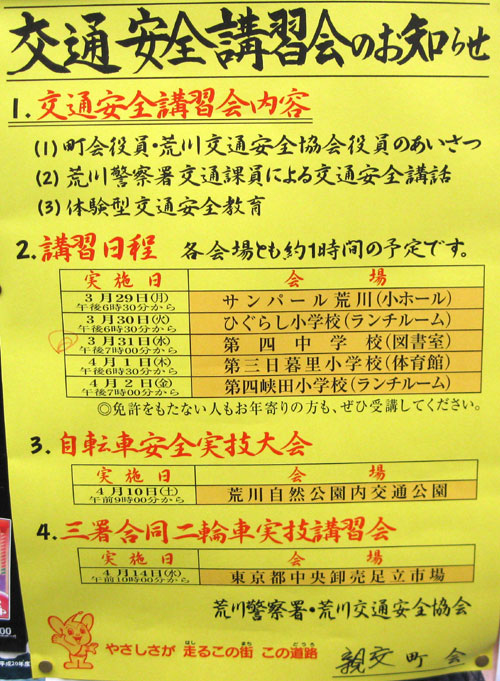 交通安全講習会のお知らせ
1. 交通安全講習会内容
(1) 町会役員・荒川交通安全協会役員のあいさつ
(2) 荒川警察署交通課員による交通安全講話
(3) 体験型交通安全教育
2. 講習日程 各会場とも約1時間の予定です。
実施日 会場
3月29日(月) 午後6時30分から サンパール荒川(小ホール)
3月30日(火) 午後6時30分から ひぐらし小学校(ランチルーム)
3月31日(水) 午後7時00分から 第四中学校(図書室)
4月1日(木) 午後6時30分から 第三日暮里小学校(体育館)
4月2日(金) 午後7時00分から 第四峡田小学校(ランチルーム)
◎免許をもたない人もお年寄りの方も、ぜひ受講してください。
3. 自転車安全実技大会
実施日 会場
4月10日(土) 午前9時00分から 荒川自然公園内交通公園
4. 三署合同二輪車実技講習会
実施日 会場
4月14日(水) 午前10時00分から 東京都中央卸売足立市場
荒川警察署・荒川交通安全協会
やさしさが 走るこの街 この道路
はし まち どうろ
親交町会
00
平成20年度